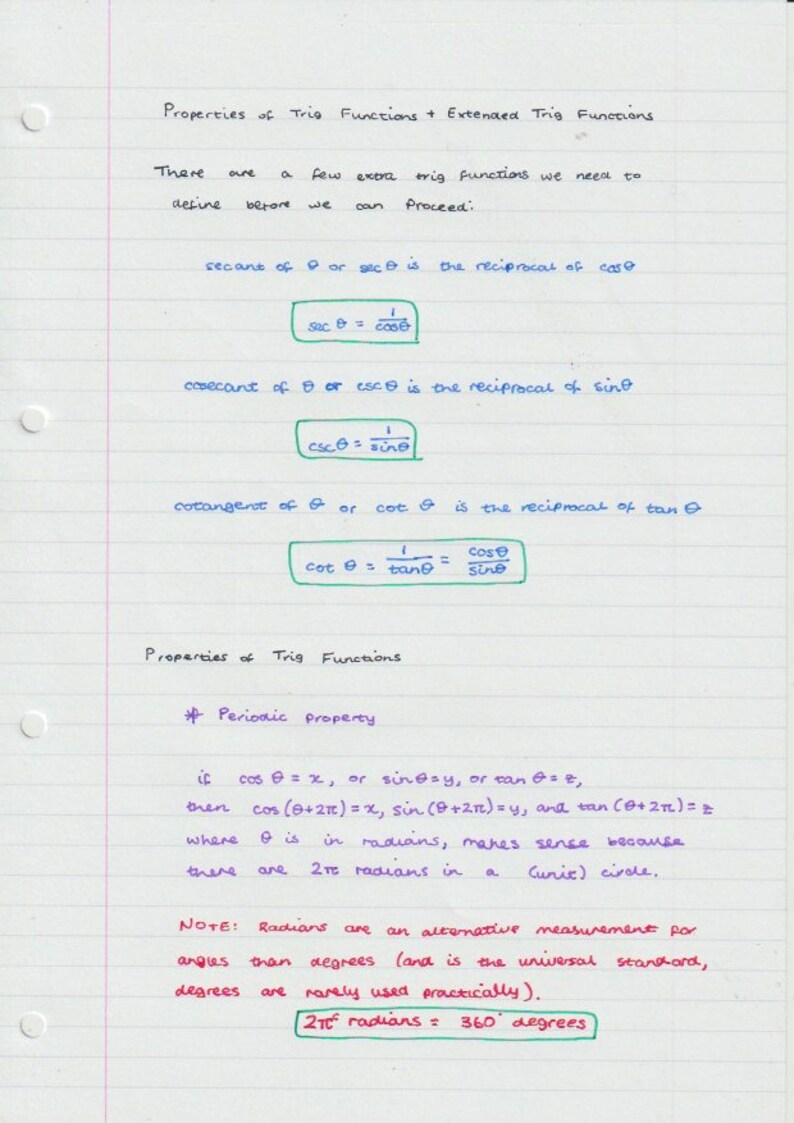 Properties of Trig Functions + Extended Trig Functions
There are a few extra trig functions we need to
define before we can proceed:
secant of θ or sec θ is the reciprocal of cosθ
sec θ = 1/cosθ
cosecant of θ or csc θ is the reciprocal of sinθ
cscθ = 1/sinθ
cotangent of θ or cot θ is the reciprocal of tan θ
cot θ = 1/tanθ = cosθ/sinθ
Properties of Trig Functions
* Periodic property
if cos θ = x, or sinθ=y, or tan θ = z,
then cos (θ+2π) = x, sin (θ+2π) = y, and tan (θ+2π) = z
where θ is in radians, makes sense because
there are 2π radians in a (unit) circle.
NOTE: Radians are an alternative measurement for
angles than degrees (and is the universal standard,
degrees are rarely used practically).
2πᶜ radians = 360° degrees